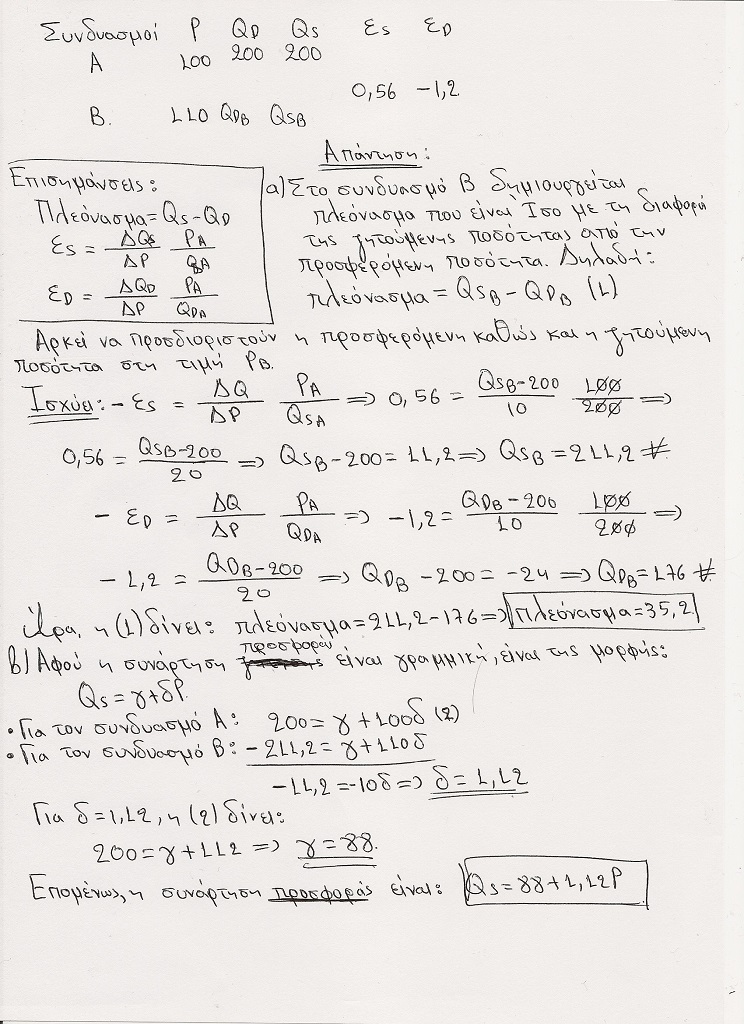 Συνδυασμοί P QD QS ES ED
A 100 200 200
0,56 -1,2
B. 110 QDB QSB
Απάντηση:
Επισημάνσεις:
Πλεόνασμα=QS-QD
ES = ΔQS/ΔP PA/QSA
ED = ΔQD/ΔP PA/QDA
α) Στο συνδυασμό Β δημιουργείται
πλεόνασμα που είναι ίσο με τη διαφορά
της ζητούμενης ποσότητας από την
προσφερόμενη ποσότητα. Δηλαδή:
πλεόνασμα = QSB-QDB (1)
Αρκεί να προσδιοριστούν η προσφερόμενη καθώς και η ζητούμενη
ποσότητα στη τιμή PB.
Ισχύει: - ES = ΔQ/ΔP PA/QSA => 0,56 = QSB-200/10 100/200 =>
0,56 = QSB-200/20 => QSB-200= 11,2 => QSB=211,2 #
- ED = ΔQ/ΔP PA/QDA => -1,2= QDB-200/10 100/200 =>
-1,2 = QDB-200/20 => QDB -200= -24 => QDB=176 #
Άρα, η (1) δίνει: πλεόνασμα=211,2-176=> πλεόνασμα=35,2
β) Αφού η συνάρτηση προσφοράς είναι γραμμική, είναι της μορφής:
QS=γ+δP.
• Για τον συνδυασμό Α: 200= γ+100δ (2)
• Για τον συνδυασμό Β: -211,2= γ+110δ
-11,2=-10δ=> δ=1,12
Για δ=1,12, η (2) δίνει:
200=γ+112 => γ=88.
Επομένως, η συνάρτηση προσφοράς είναι: QS=88+1,12P